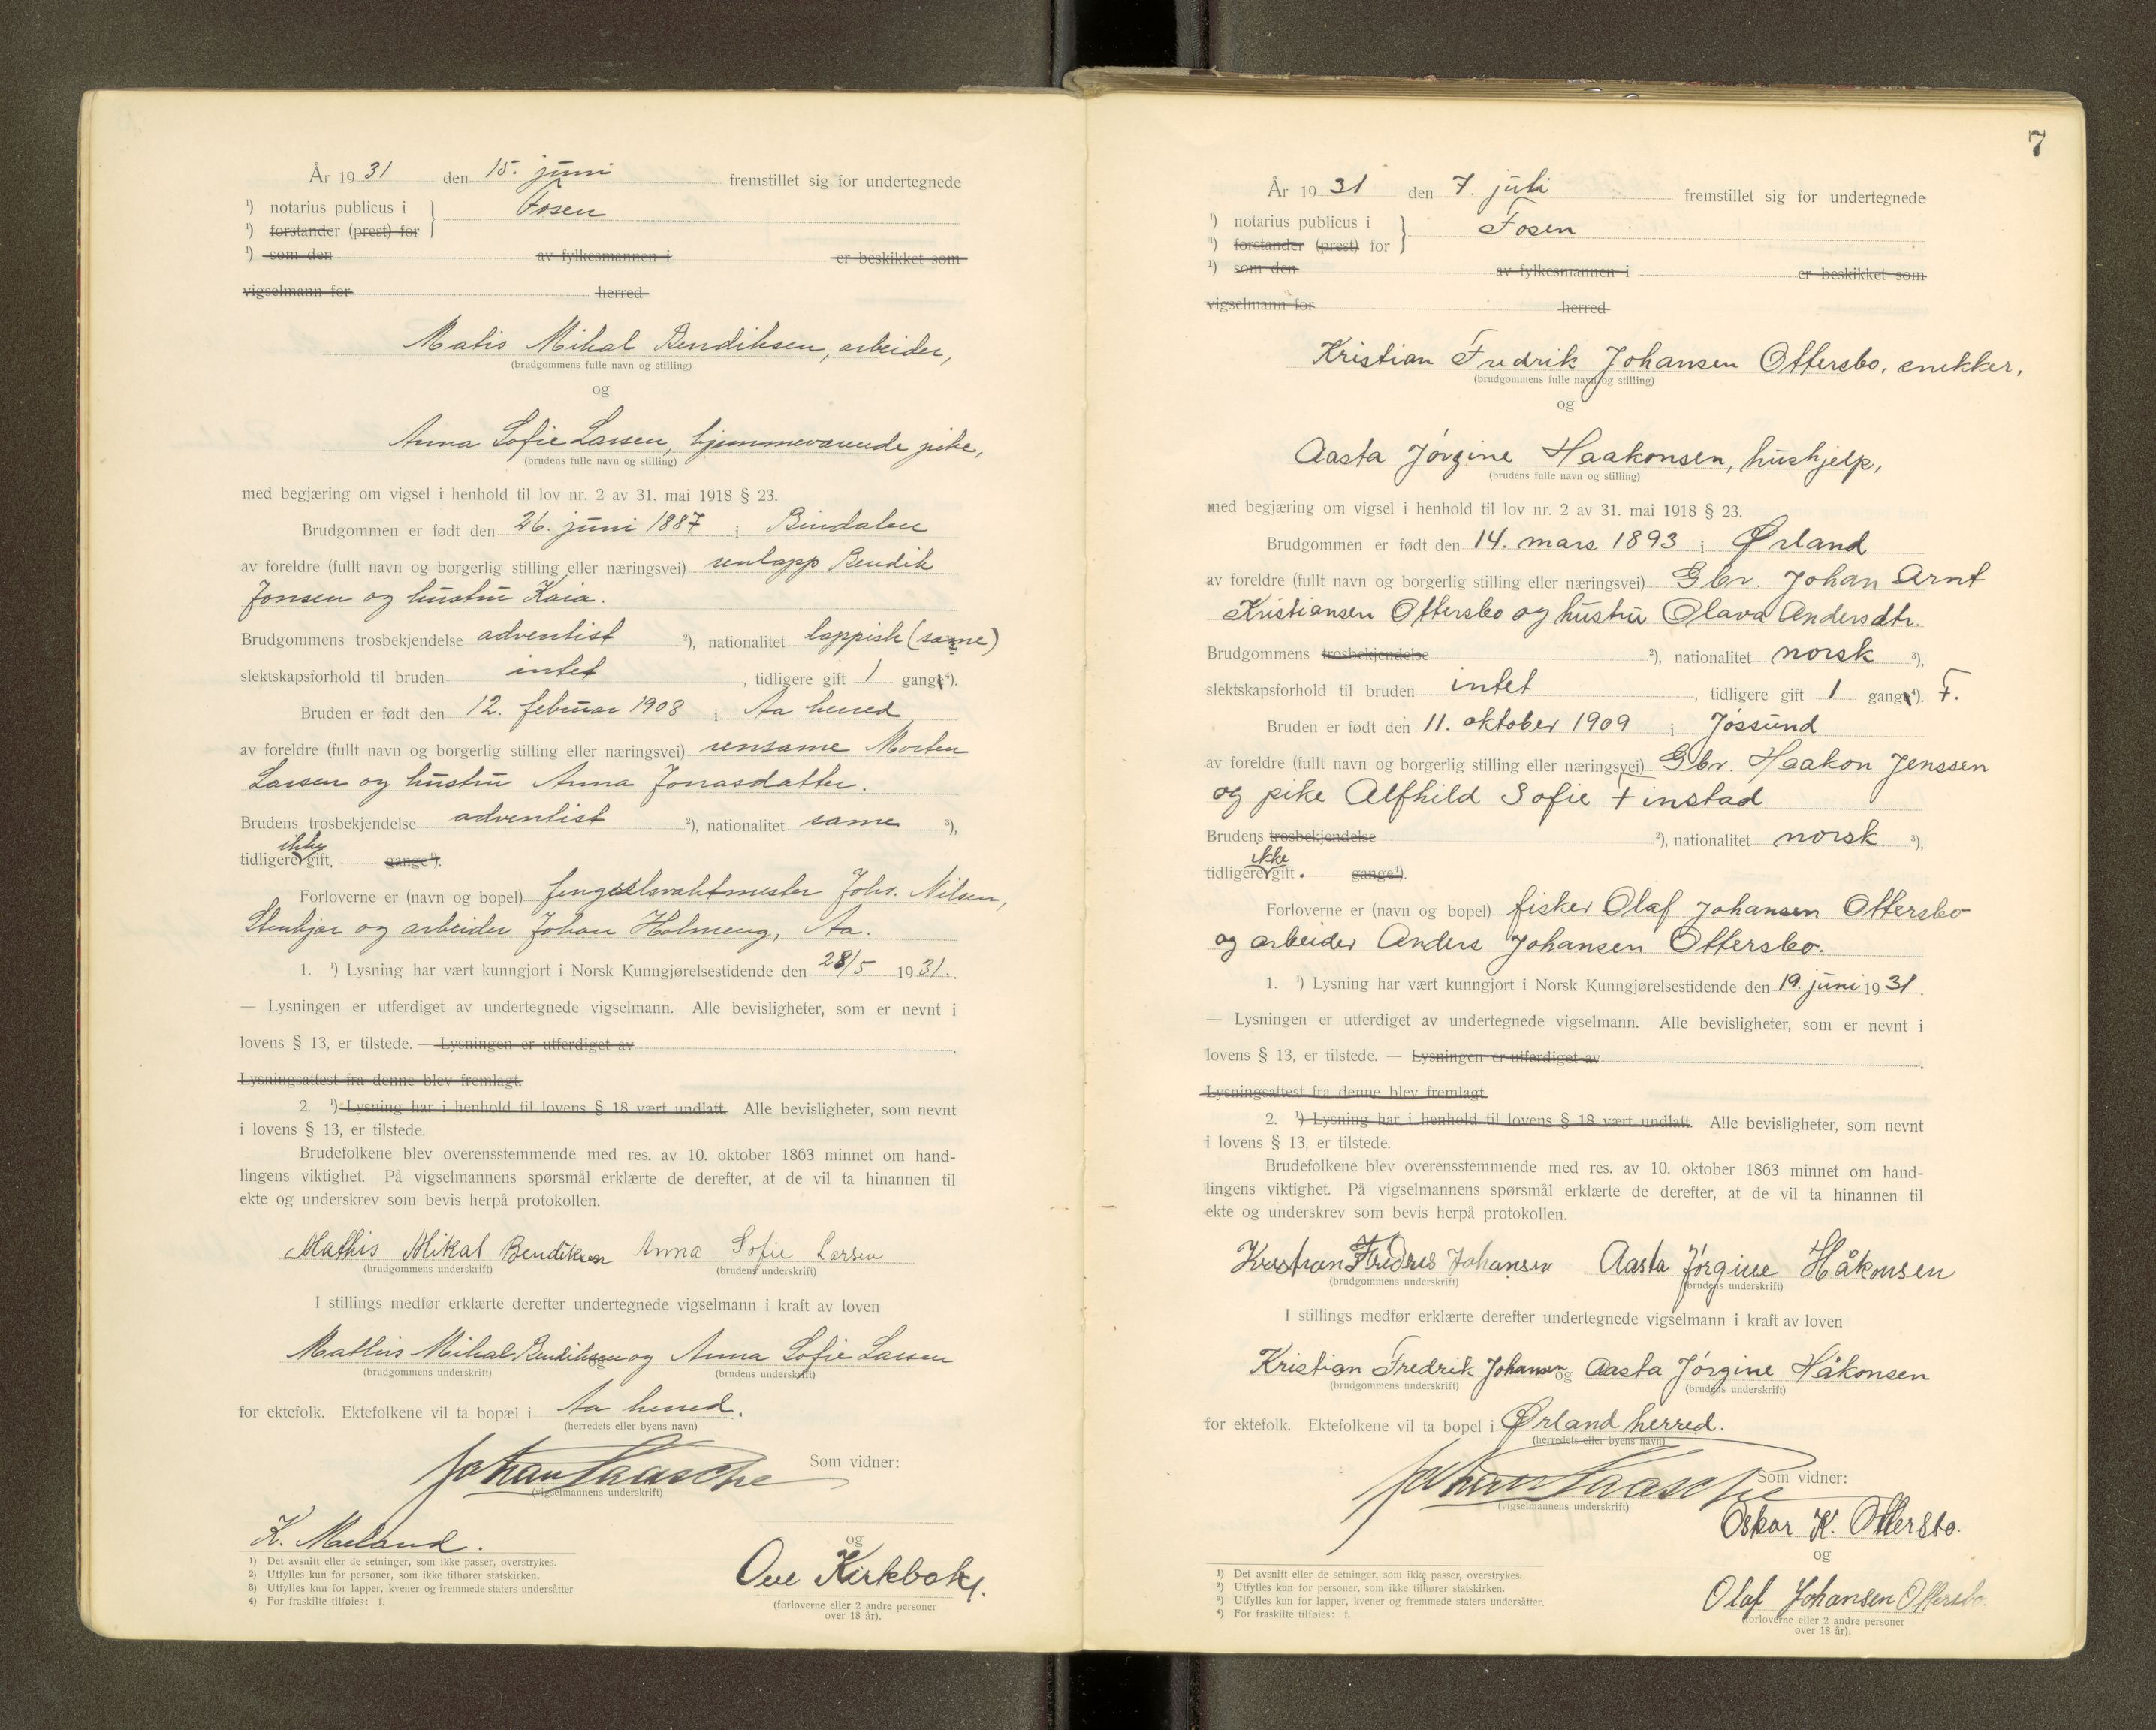 År 1931 den 15. juni fremstillet sig for undertegnede
¹) notarius publicus i } Fosen
¹) forstander (prest) for
¹) som den av fylkesmannen i er beskikket som
vigselmann for herred
Matis Mikal Bendiksen, arbeider,
(brudgommens fulle navn og stilling)
og
Anna Sofie Larsen, hjemmeværende pike,
(brudens fulle navn og stilling)
med begjæring om vigsel i henhold til lov nr. 2 av 31. mai 1918 § 23.
Brudgommen er født den 26. juni 1887 i Bindalen
av foreldre (fullt navn og borgerlig stilling eller næringsvei) renlapp Bendik
Jonsen og hustru Kaia.
Brudgommens trosbekjendelse adventist ²), nationalitet lappisk (same)
slektskapsforhold til bruden intet, tidligere gift 1 gang⁴).
Bruden er født den 12. februar 1908 i Aa herred
av foreldre (fullt navn og borgerlig stilling eller næringsvei) rensame Morten
Larsen og hustru Anna Jonasdatter.
Brudens trosbekjendelse adventist ²), nationalitet same ³),
tidligere ikke gift, gange⁴).
Forloverne er (navn og bopel) fengselsvaktmester Johs. Nilsen,
Stenkjær og arbeider Johan Holmeng, Aa.
1. ¹) Lysning har vært kunngjort i Norsk Kunngjørelsestidende den 28/5 1931.
— Lysningen er utferdiget av undertegnede vigselmann. Alle bevisligheter, som er nevnt i
lovens § 13, er tilstede. — Lysningen er utferdiget av
Lysningsattest fra denne blev fremlagt.
2. ¹) Lysning har i henhold til lovens § 18 vært undlatt. Alle bevisligheter, som nevnt
i lovens § 13, er tilstede.
Brudefolkene blev overensstemmende med res. av 10. oktober 1863 minnet om hand-
lingens viktighet. På vigselmannens spørsmål erklærte de derefter, at de vil ta hinannen til
ekte og underskrev som bevis herpå protokollen.
Mathis Mikal Bendiksen Anna Sofie Larsen
(brudgommens underskrift) (brudens underskrift)
I stillings medfør erklærte derefter undertegnede vigselmann i kraft av loven
Mathis Mikal Bendiksen og Anna Sofie Larsen
(brudgommens underskrift) (brudens underskrift)
for ektefolk. Ektefolkene vil ta bopæl i Aa herred.
(herredets eller byens navn)
Johan Paasche Som vidner:
(vigselmannens underskrift)
K. Meland.
og
Ove Kirkbakk.
(forloverne eller 2 andre personer
over 18 år).
1) Det avsnitt eller de setninger, som ikke passer, overstrykes.
2) Utfylles kun for personer, som ikke tilhører statskirken.
3) Utfylles kun for lapper, kvener og fremmede staters undersåtter
4) For fraskilte tilføies: f.
7
År 1931 den 7. juli fremstillet sig for undertegnede
¹) notarius publicus i } Fosen
¹) forstander (prest) for
¹) som den av fylkesmannen i er beskikket som
vigselmann for herred
Kristian Fredrik Johansen Ottersbo, snekker,
(brudgommens fulle navn og stilling)
og
Aasta Jørgine Haakonsen, hushjelp,
(brudens fulle navn og stilling)
med begjæring om vigsel i henhold til lov nr. 2 av 31. mai 1918 § 23.
Brudgommen er født den 14. mars 1893 i Ørland
av foreldre (fullt navn og borgerlig stilling eller næringsvei) Gbr. Johan Arnt
Kristiansen Ottersbo og hustru Olava Andersdtr.
Brudgommens trosbekjendelse ²), nationalitet norsk ³),
slektskapsforhold til bruden intet, tidligere gift 1 gang⁴). F.
Bruden er født den 11. oktober 1909 i Jøssund
av foreldre (fullt navn og borgerlig stilling eller næringsvei) Gbr. Haakon Jenssen
og pike Alfhild Sofie Finstad
Brudens trosbekjendelse ²), nationalitet norsk ³),
tidligere ikke gift. gange⁴).
Forloverne er (navn og bopel) fisker Olaf Johansen Ottersbo
og arbeider Anders Johansen Ottersbo.
1. ¹) Lysning har vært kunngjort i Norsk Kunngjørelsestidende den 19. juni 1931.
— Lysningen er utferdiget av undertegnede vigselmann. Alle bevisligheter, som er nevnt i
lovens § 13, er tilstede. — Lysningen er utferdiget av
Lysningsattest fra denne blev fremlagt
2. ¹) Lysning har i henhold til lovens § 18 vært undlatt. Alle bevisligheter, som nevnt
i lovens § 13, er tilstede.
Brudefolkene blev overensstemmende med res. av 10. oktober 1863 minnet om hand-
lingens viktighet. På vigselmannens spørsmål erklærte de derefter, at de vil ta hinannen til
ekte og underskrev som bevis herpå protokollen.
Kristian Johansen Aasta Jørgine Håkonsen
(brudgommens underskrift) (brudens underskrift)
I stillings medfør erklærte derefter undertegnede vigselmann i kraft av loven
Kristian Fredrik Johansen og Aasta Jørgine Håkonsen
(brudgommens underskrift) (brudens underskrift)
for ektefolk. Ektefolkene vil ta bopel i Ørland herred.
(herredets eller byens navn)
Johan Paasche Som vidner:
(vigselmannens underskrift)
Oskar K. Ottersbo.
og
Olaf Johansen Ottersbo.
(forloverne eller 2 andre personer
over 18 år).
¹) Det avsnitt eller de setninger, som ikke passer, overstrykes.
²) Utfylles kun for personer, som ikke tilhører statskirken.
³) Utfylles kun for lapper, kvener og fremmede staters undersåtter.
⁴) For fraskilte tilføies: f.